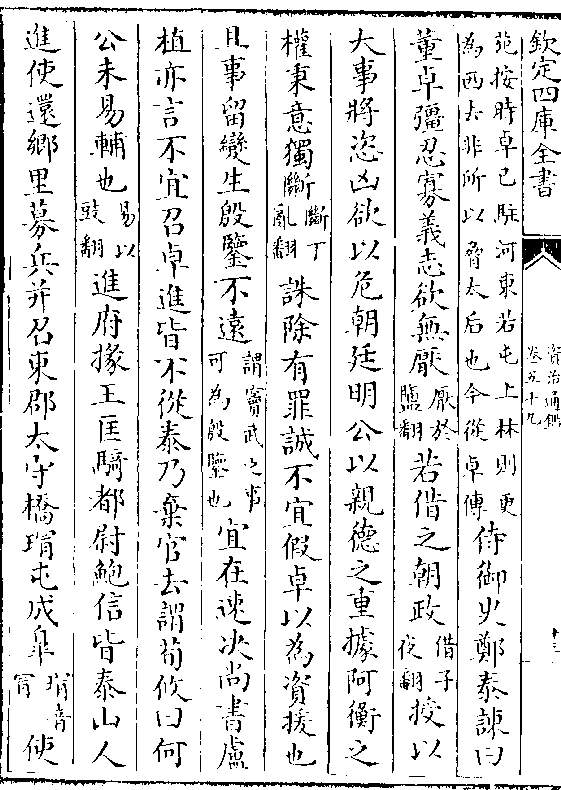 欽定四庫全書
資治通鑑
卷五十九
十三
苑按時卓已駐河東若屯上林則更
為西去非所以脅太后也今從卓傳
侍御史鄭泰諫曰
董卓彊忍寡義志欲無厭厭於鹽翻若借之朝政借子夜翻授以
大事將恣凶欲以危朝廷明公以親德之重據阿衡之
權秉意獨斷斷丁亂翻誅除有罪誠不宜假卓以為資援也
且事留變生殷鑒不遠謂竇武之事可為殷鑒也宜在速決尚書盧
植亦言不宜召卓進皆不從泰乃棄官去謂荀攸曰何
公未易輔也易以豉翻進府掾王匡騎都尉鮑信皆泰山人
進使還鄉里募兵并召東郡太守橋瑁屯成臯瑁音冐使